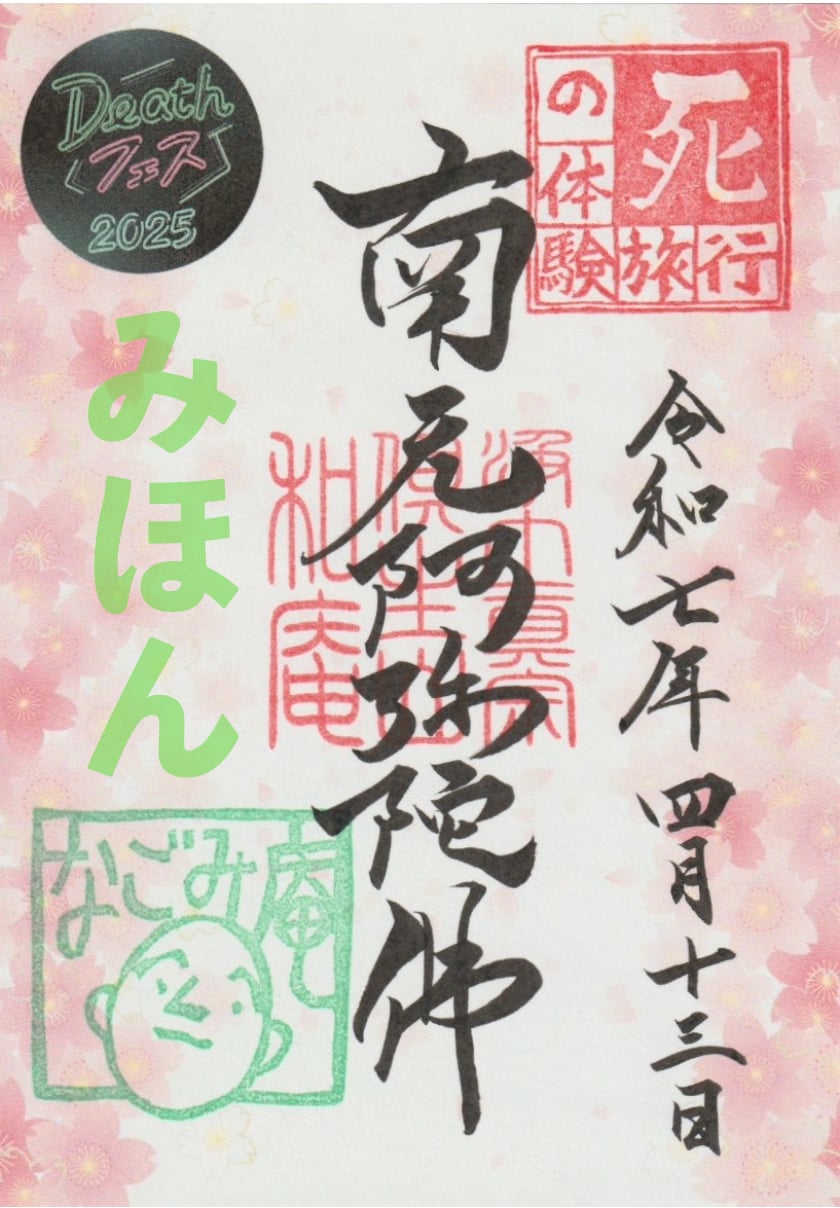 Death
フェス
2025
死の体験旅行
南无阿弥陀佛
令和七年四月十三日
浄土真宗
倶生山
和庵
みほん
なごみ庵